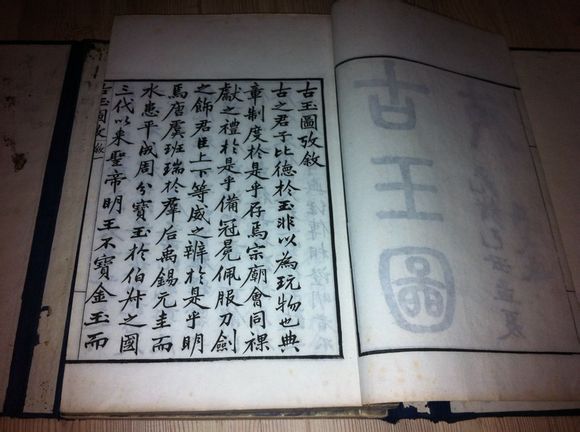 古玉圖
古玉圖攷敘
古之君子比德於玉非以為玩物也典
章制度於是乎存焉宗廟會同祼
獻之禮於是乎備冠冕佩服刀劍
之飾君臣上下等威之辨於是乎明
焉唐虞班瑞於羣后禹錫元圭而
水患平成周分寶玉於伯叔之國
三代以來聖帝明王不寶金玉而
古玉圖攷敘